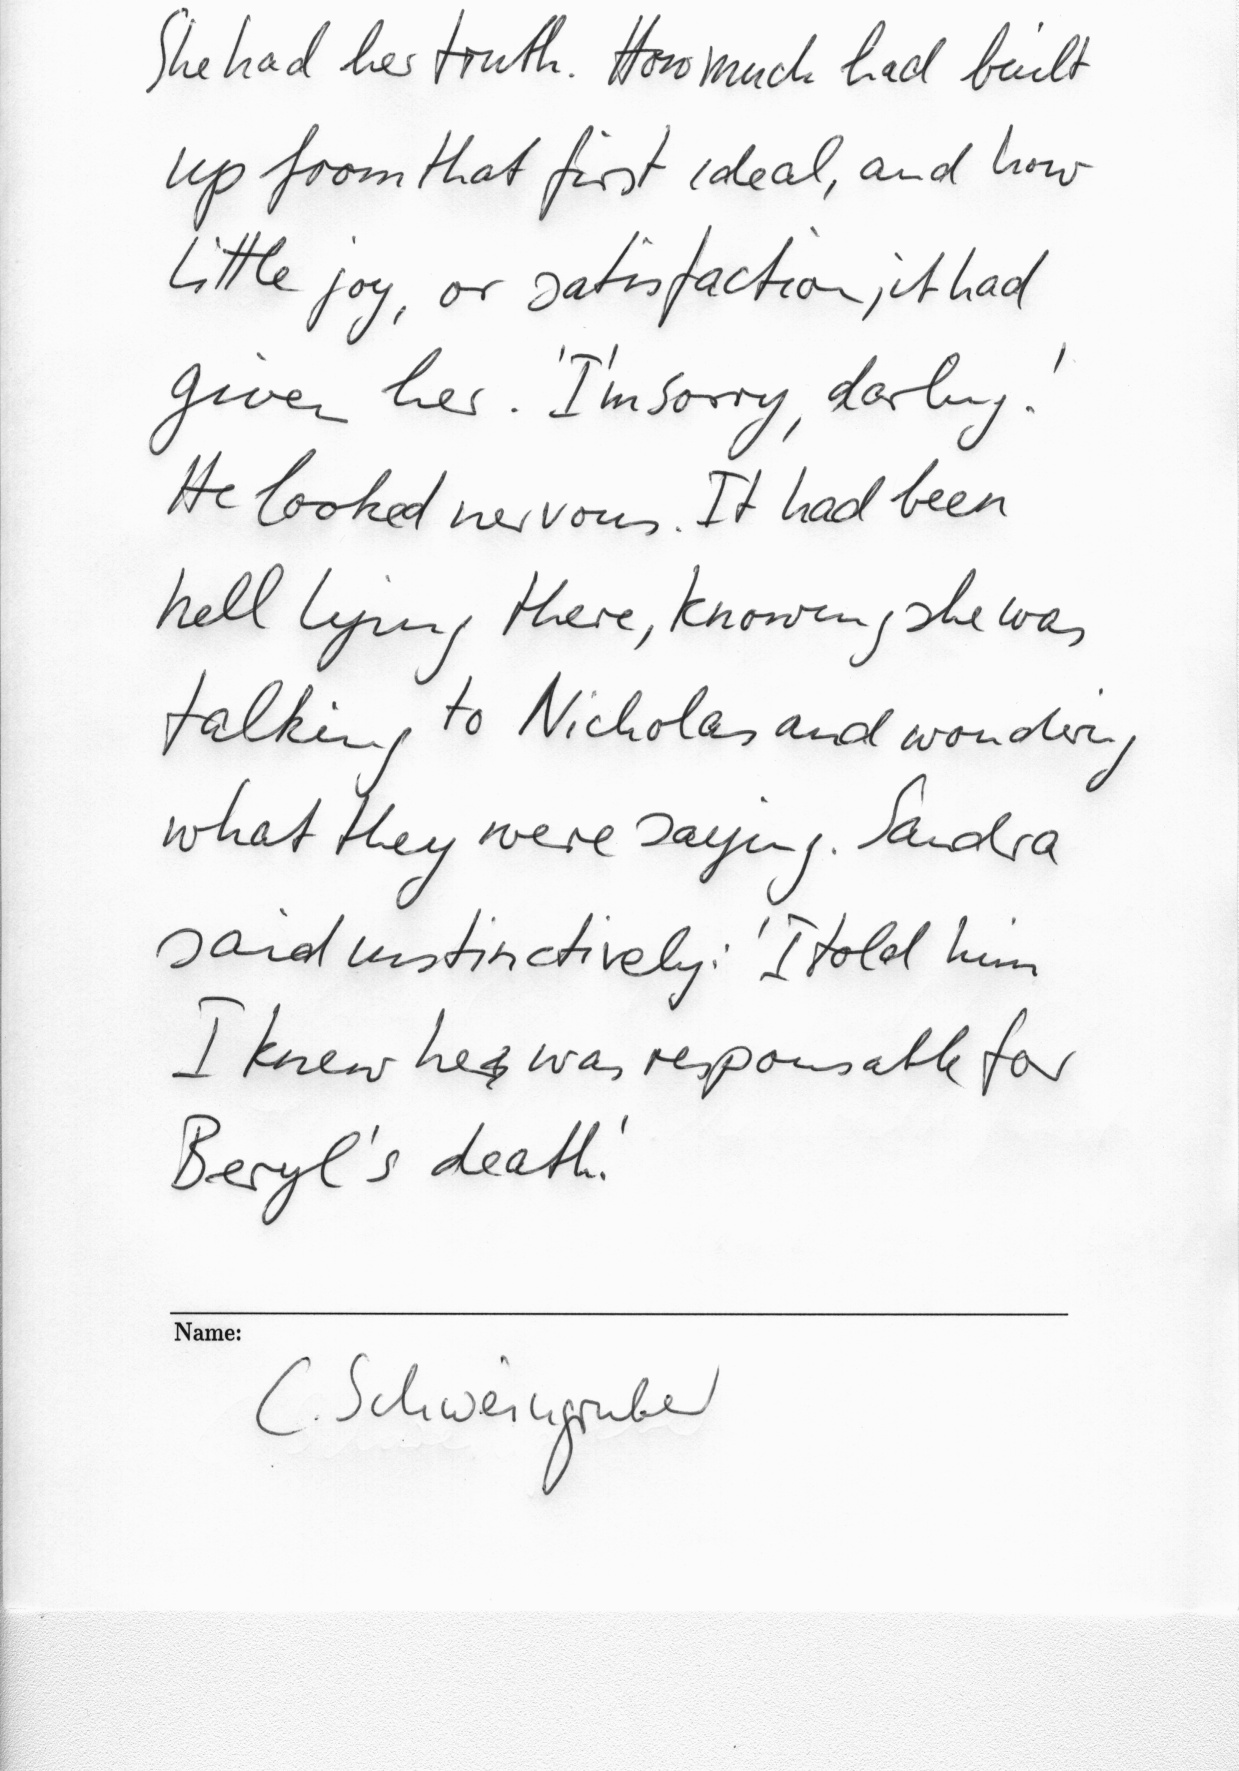 She had her truth. How much had built
up from that first ideal, and how
little joy, or satisfaction, it had
given her. 'I'm sorry, darling.'
He looked nervous. It had been
hell lying there, knowing she was
talking to Nicholas and wondering
what they were saying. Sandra
said instinctively: 'I told him
I knew he was responsable for
Beryl's death.'
Name:
C. Schweingruber